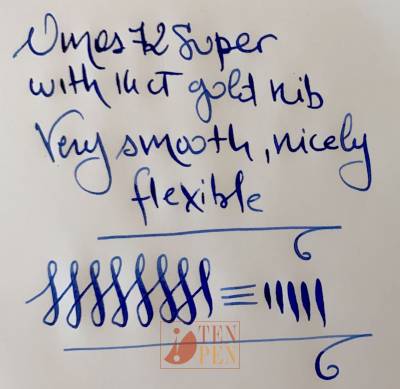 Omas 72 Super
with 14 CT gold nib
Very smooth, nicely
flexible
TEN
PEN